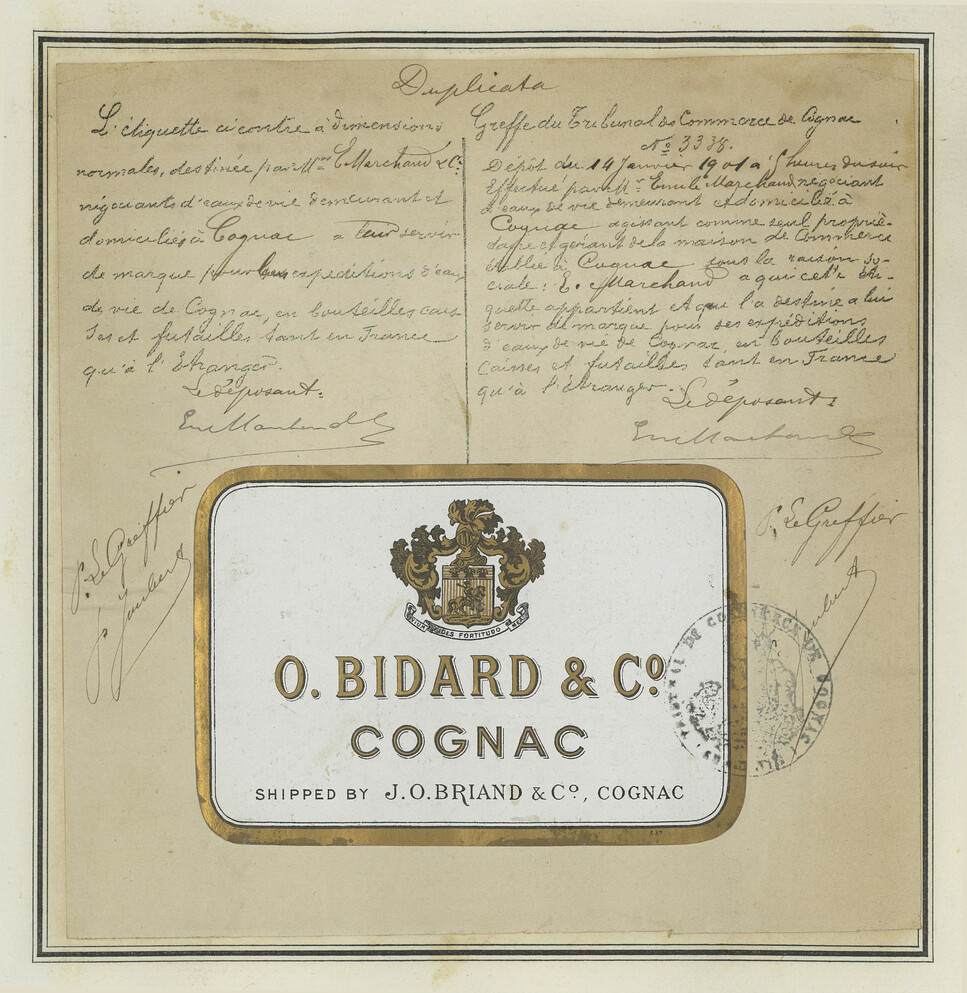 Duplicata
L'étiquette ci contre à dimensions
normales, destinée par M.rs E. Marchand & C.ie
négociants d'eaux de vie demeurant et
domiciliés à Cognac a leur servir
de marque pour leurs expeditions d'eaux
de vie de Cognac, en bouteilles cais
ses et futailles tant en France
qu'à l'Etranger.
Le déposant:
Em Marchand
P. Le Greffier
Joubert
Greffe du Tribunal de Commerce de Cognac
No 3338.
Dépôt du 14 Janvier 1901 à 5 heures du soir
Effectué par M.r Emile Marchand négociant
d'eaux de vie demeurant et domicilié à
Cognac agissant comme seul proprié-
taire et gérant de la maison de Commerce
établie à Cognac sous la raison so-
ciale: E. Marchand a qui cette éti-
quette appartient et que l'a destinée a lui
servir de marque pour ses expéditions
d'eaux de vie de Cognac en bouteilles
caisses et futailles tant en France
qu'à l'étranger.
Le déposant:
Em Marchand
P. Le Greffier
Joubert
FORTITUDO
O. BIDARD & Co
COGNAC
SHIPPED BY J.O. BRIAND & Co, COGNAC
TRIBUNAL DE COMMERCE DE COGNAC